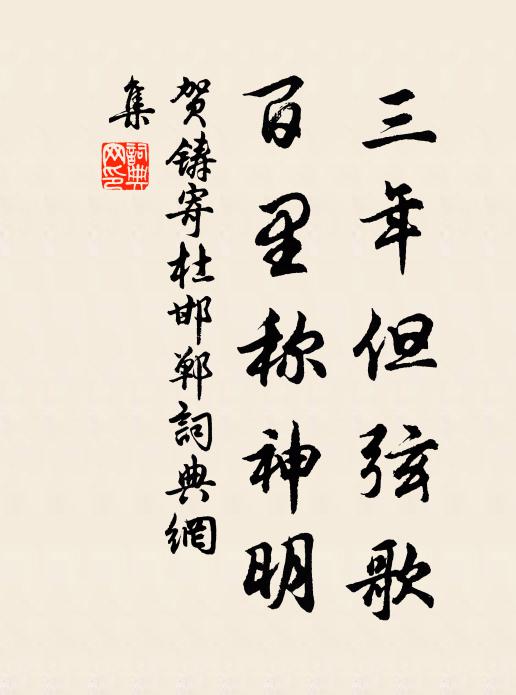 三年但弦歌
百里称神明
贺鑄寄杜邯郸詞典網
集
詞典网印